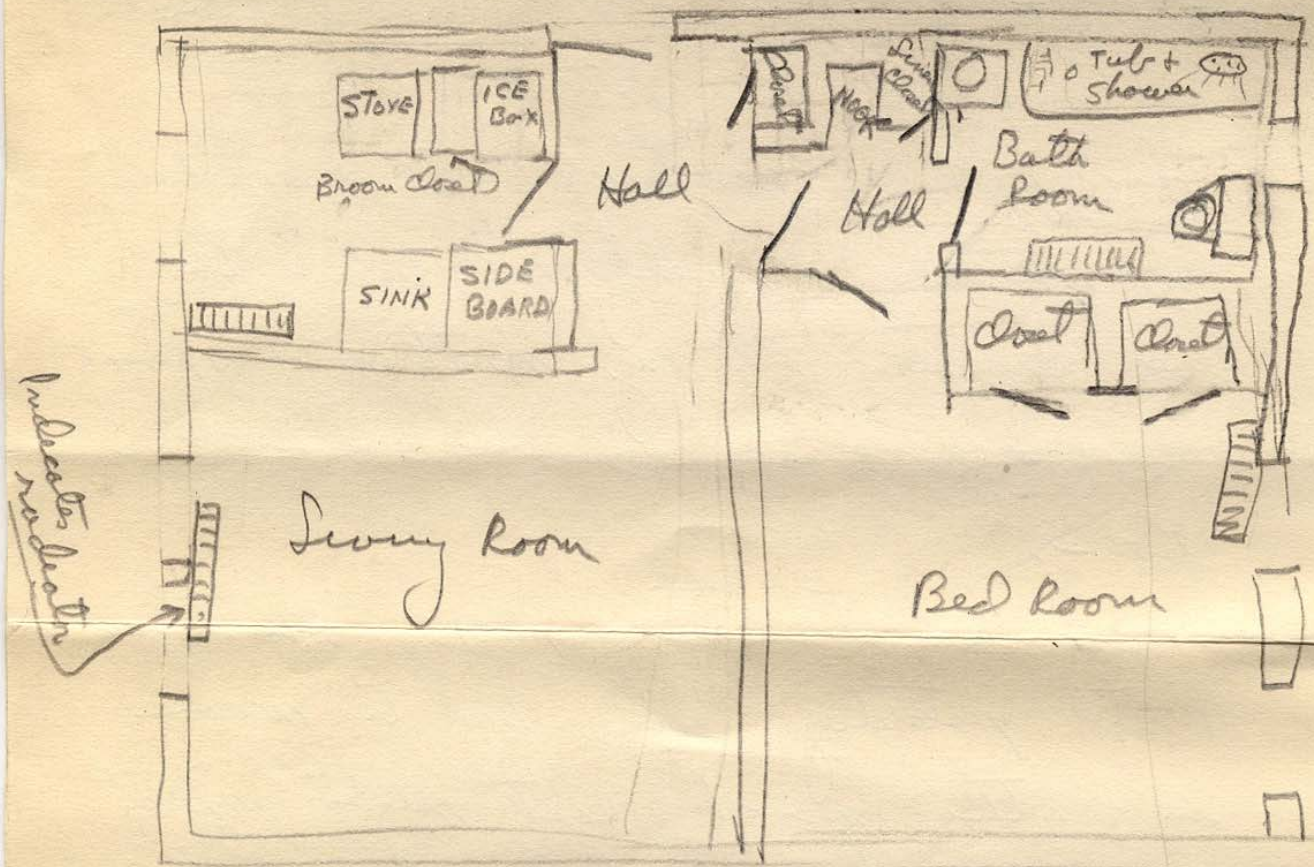 STOVE
ICE
Box
Broom Closet
Hall
Closet
Linen
Closet
Tub +
Shower
Bath
Room
Hall
SINK
SIDE
BOARD
Closet
Closet
Indicates
radiator
Living Room
Bed Room